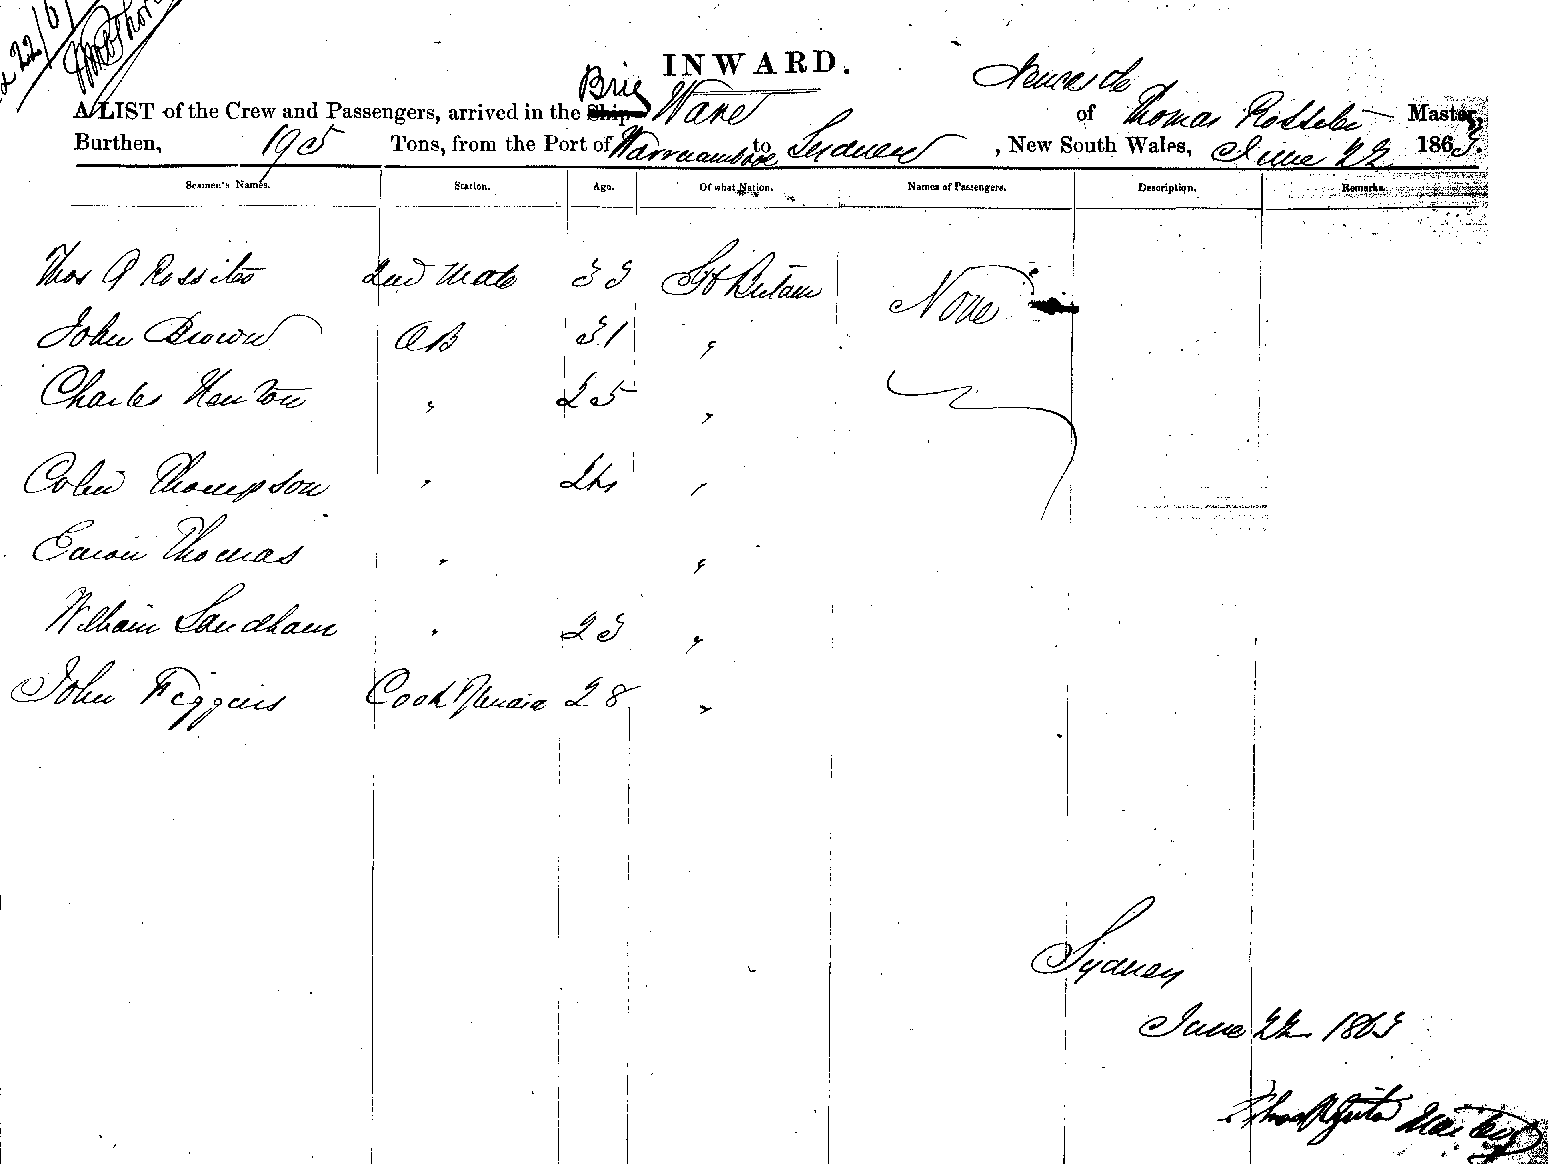 22/6/
INWARD.
Brig Newcastle
A LIST of the Crew and Passengers, arrived in the Ship Wave of Thomas Rossiter Master,
Burthen, 195 Tons, from the Port of Warrnambool to Sydney, New South Wales, June 22 1863.
Seamen's Names. Station. Age. Of what Nation. Names of Passengers. Description. Remarks.
Thos A Rossiter 2nd Mate 33 Gt Britain None
John Brown AB 31 "
Charles Hanton " 25 "
Colin Thompson " 24 "
Thomas " "
William Sandham " 23 "
John Figgins Cook 28 "
Sydney
June 22 1863
Master